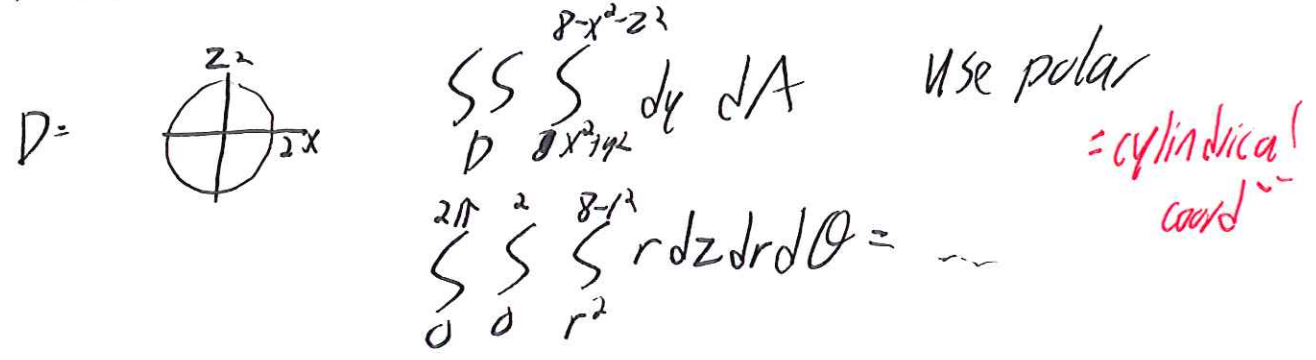 D= Z 2 2 X
∫∫_D ∫_{x²+y²}^{8-x²-z²} dy dA use polar
= cylindrical
coord
∫_0^{2π} ∫_0^2 ∫_{r²}^{8-r²} r dz dr dθ = ...